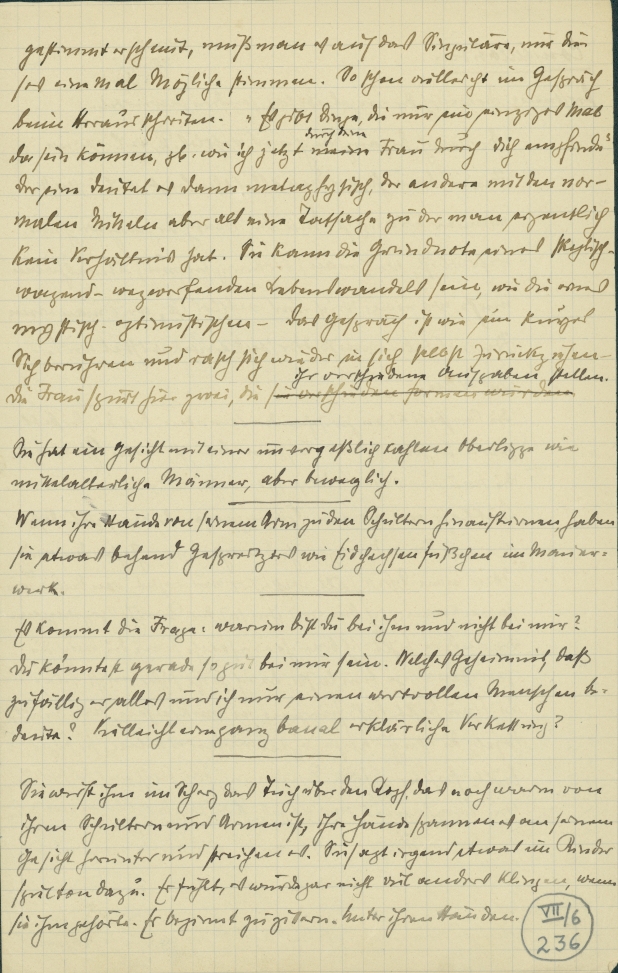 gestimmt erscheint, muß man es auf das Singuläre, nur die-
ses eine Mal Mögliche stimmen. So schon vielleicht im Gespräch
beim Herausschreiten. „Es gibt Dinge, die nur ein einziges Mal
da sein können, zb. wie ich jetzt durch meine Frau durch dich empfinde“
Der eine deutet es dann metaphysisch, der andere mit den nor-
malen Mitteln aber als eine Tatsache zu der man eigentlich
kein Verhältnis hat. Sie kann die Grundnote eines skeptisch-
wagend-wegwerfenden Lebenswandels sein, wie die eines
mystisch-optimistischen – Das Gespräch ist wie ein kurzes
Sich berühren und rasch sich wieder in sich selbst zurückziehen –
ihr verschiedene Aufgaben stellen.
die Frau spürt hier zwei, die
Sie hat ein Gesicht mit einer unvergeßlich kahlen Oberlippe wie
mittelalterliche Männer, aber beweglich.
Wenn ihre Hände von seinem Arm zu den Schultern hinauf können, haben
sie etwas behend Gespreiztes wie Eidechsenfüßchen im Mauer-
werk.
Es kommt die Frage: warum bist du bei ihm und nicht bei mir?
Du könntest gerade so gut bei mir sein. Welches Geheimnis, daß
zufällig er alles und ich nur einen wertvollen Menschen be-
deute? Vielleicht eine ganz banal erklärliche Verkettung?
Sie wirft ihm im Scherz das Tuch über den Kopf, das noch warm von
ihren Schultern und Armen ist, ihre Hände spannen es an seinem
Gesicht herunter und streichen es. Sie sagt irgend etwas im Kinder
spielton dazu. Er fühlt, es würde gar nicht viel anders klingen, wenn
sie ihm gehörte. Er beginnt zu zittern. Unter ihren Händen.
VII/6
236